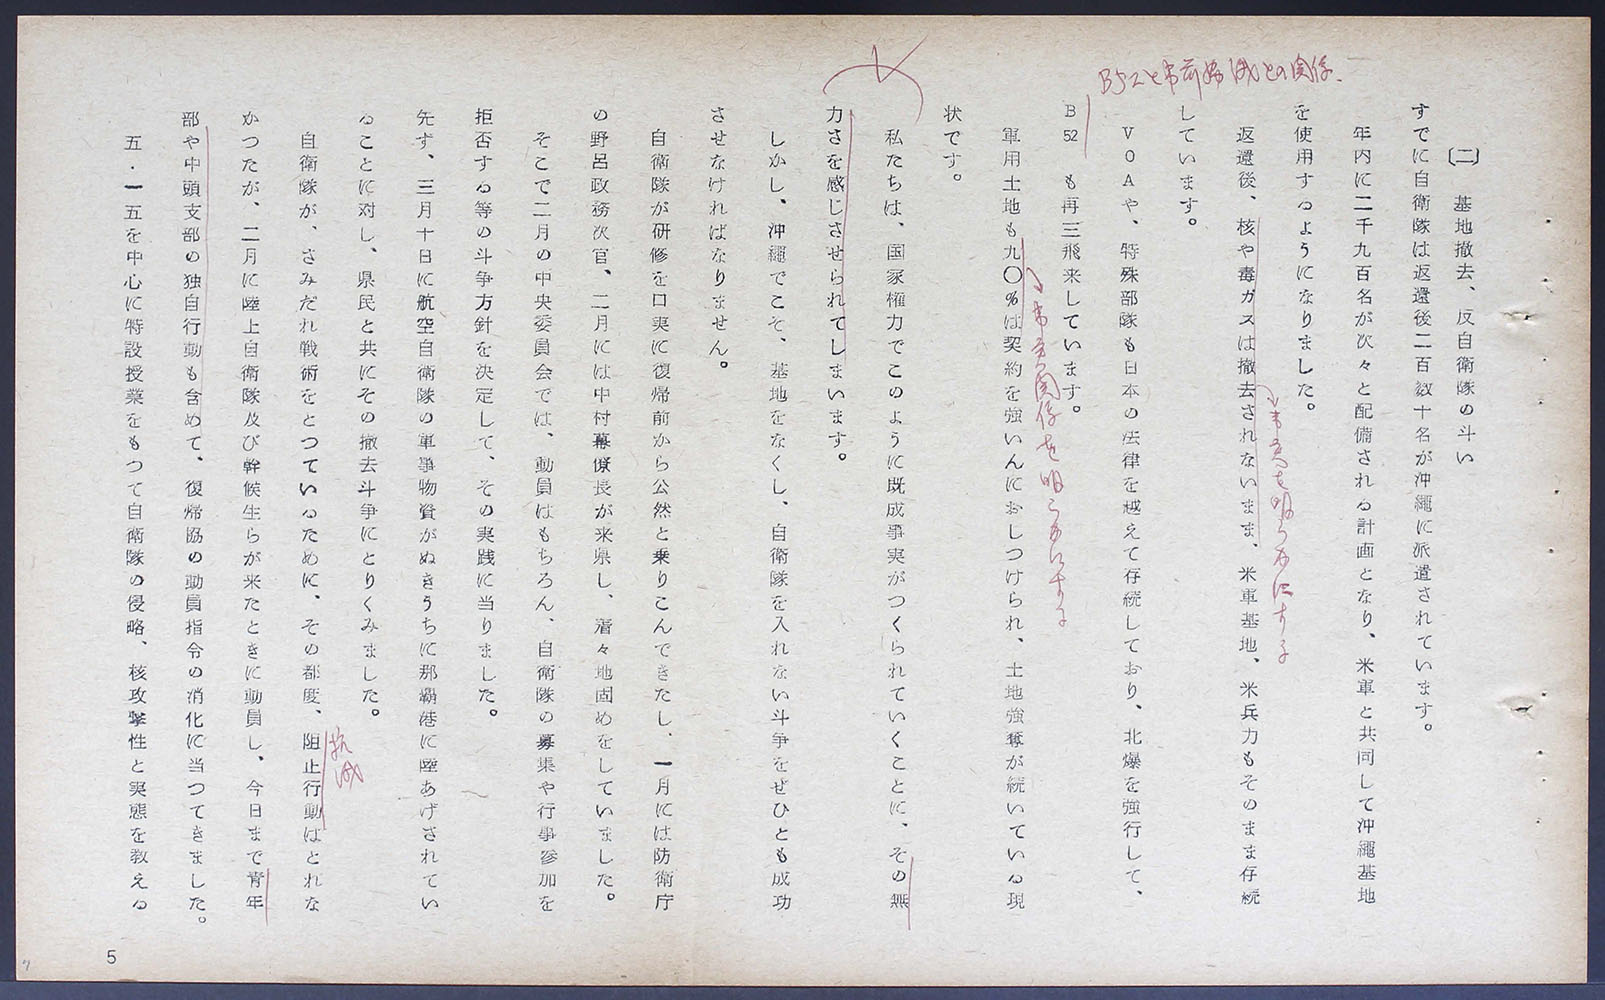 B52と
との関係.
〔二〕 基地撤去、反自衛隊の斗い
すでに自衛隊は返還後二百数十名が沖縄に派遣されています。
年内に二千九百名が次々と配備される計画となり、米軍と共同して沖縄基地
を使用するようになりました。
返還後、核や毒ガスは撤去されないまま、米軍基地、米兵力もそのまま存続
を明らかにする
しています。
VOAや、特殊部隊も日本の法律を越えて存続しており、北爆を強行して、
B52 も再三飛来しています。
関係を明らかにする
軍用土地も九〇%は契約を強いんにおしつけられ、土地強奪が続いている現
状です。
私たちは、国家権力でこのように既成事実がつくられていくことに、その無
力さを感じさせられてしまいます。
しかし、沖縄でこそ、基地をなくし、自衛隊を入れない斗争をぜひとも成功
させなければなりません。
自衛隊が研修を口実に復帰前から公然と乗りこんできたし、一月には防衛庁
の野呂政務次官、二月には中村幕僚長が来県し、着々地固めをしていました。
そこで二月の中央委員会では、動員はもちろん、自衛隊の募集や行事参加を
拒否する等の斗争方針を決定して、その実践に当りました。
先ず、三月十日に航空自衛隊の軍事物資がぬきうちに那覇港に陸あげされてい
ることに対し、県民と共にその撤去斗争にとりくみました。
抗議
自衛隊が、さみだれ戦術をとつているために、その都度、阻止行動はとれな
かつたが、二月に陸上自衛隊及び幹候生らが来たときに動員し、今日まで青年
部や中頭支部の独自行動も含めて、復帰協の動員指令の消化に当つてきました。
五・一五を中心に特設授業をもつて自衛隊の侵略、核攻撃性と実態を教える
5
7